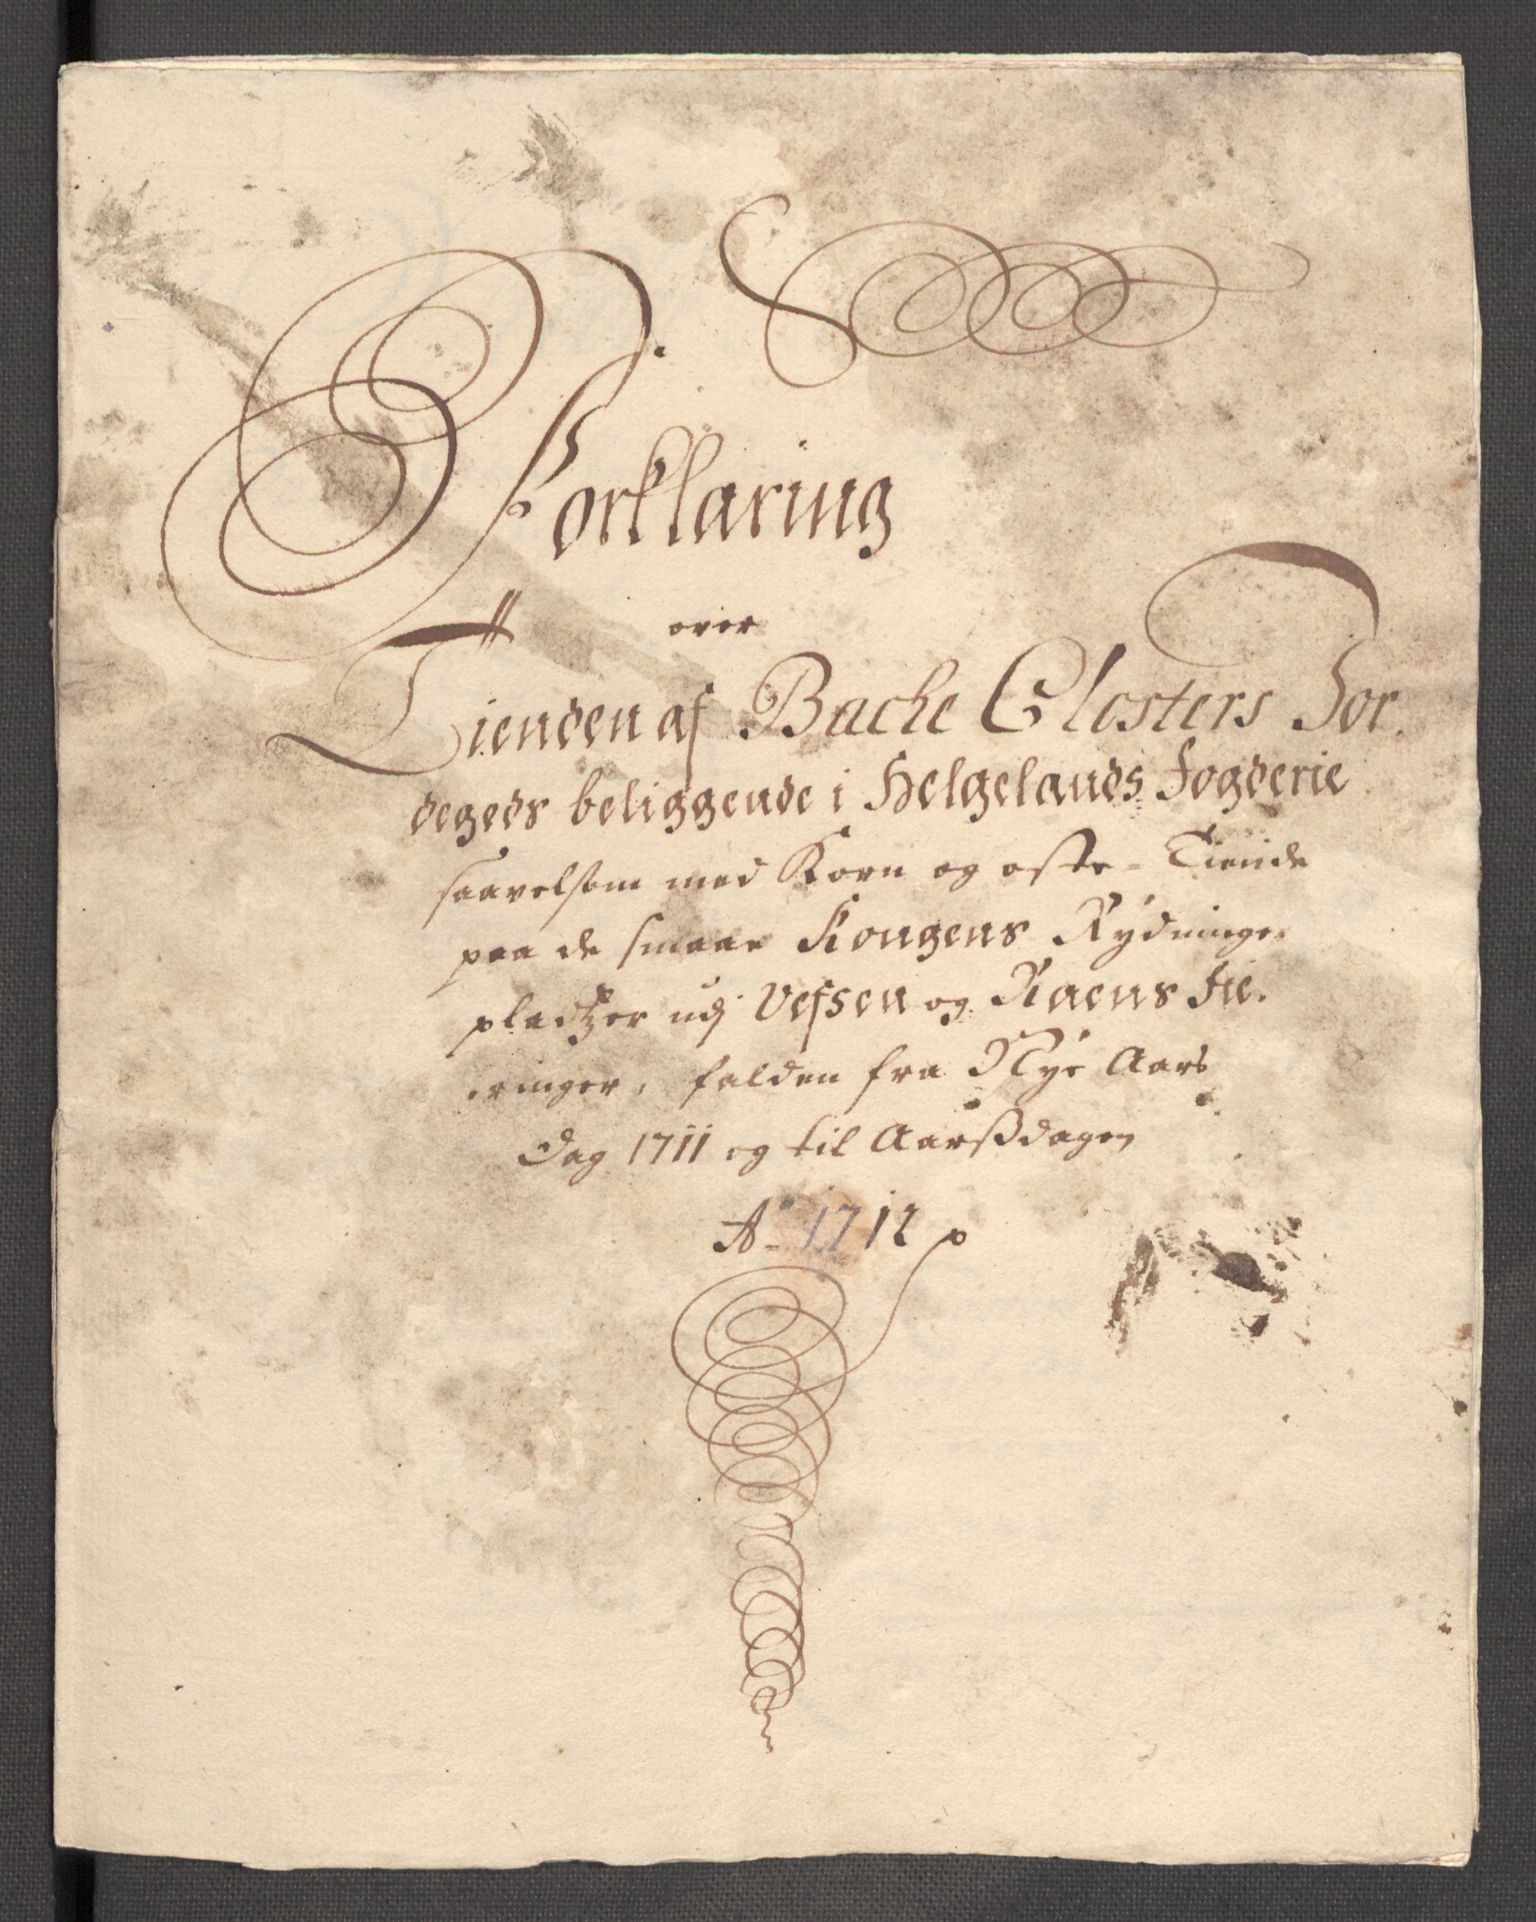 Forklaring
over
Tienden af Bache Closters Jor-
degeds beliggende i Helgelands Fogderie
saavelsom med Korn og oste-Tiende
paa de smaae Kongens Rydninge-
pladtzer udj Vefsen og Raens Fie-
ringer, falden fra Nye Aars
Dag 1711 og til Aarsdagen
Ao 1712